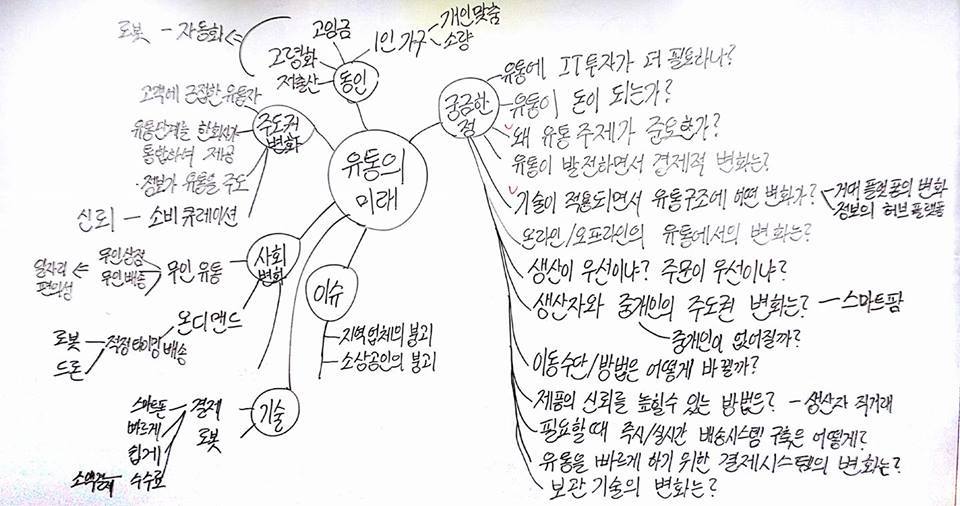 유통의
미래
동인
고임금
고령화
저출산
로봇 - 자동화
1인 가구
개인맞춤
소량
주도권
변화
고객에 근접한 유통자
유통단계를 한회사가
통합하여 제공
·정보가 유통을 주도
신뢰 - 소비 큐레이션
사회
변화
무인 유통
무인상점
무인배송
일자리
편의성
온디맨드
적정타이밍 배송
로봇
드론
이슈
지역업체의 붕괴
소상공인의 붕괴
기술
결제
로봇
스마트폰
빠르게
쉽게
수수료
궁금한
점
유통에 IT투자가 더 필요하나?
유통이 돈이 되는가?
왜 유통 주제가 중요한가?
유통이 발전하면서 경제적 변화는?
기술이 적용되면서 유통구조에 어떤 변화가?
거대 플랫폼의 변화
정보의 허브 플랫폼
온라인/오프라인의 유통에서의 변화는?
생산이 우선이냐? 주문이 우선이냐?
생산자와 중개인의 주도권 변화는? - 스마트팜
중개인이 없어질까?
이동수단/방법은 어떻게 바뀔까?
제품의 신뢰를 높힐수 있는 방법은? - 생산자 직거래
필요할때 즉시/실시간 배송시스템 구축은 어떻게?
유통을 빠르게 하기 위한 결제시스템의 변화는?
보관 기술의 변화는?